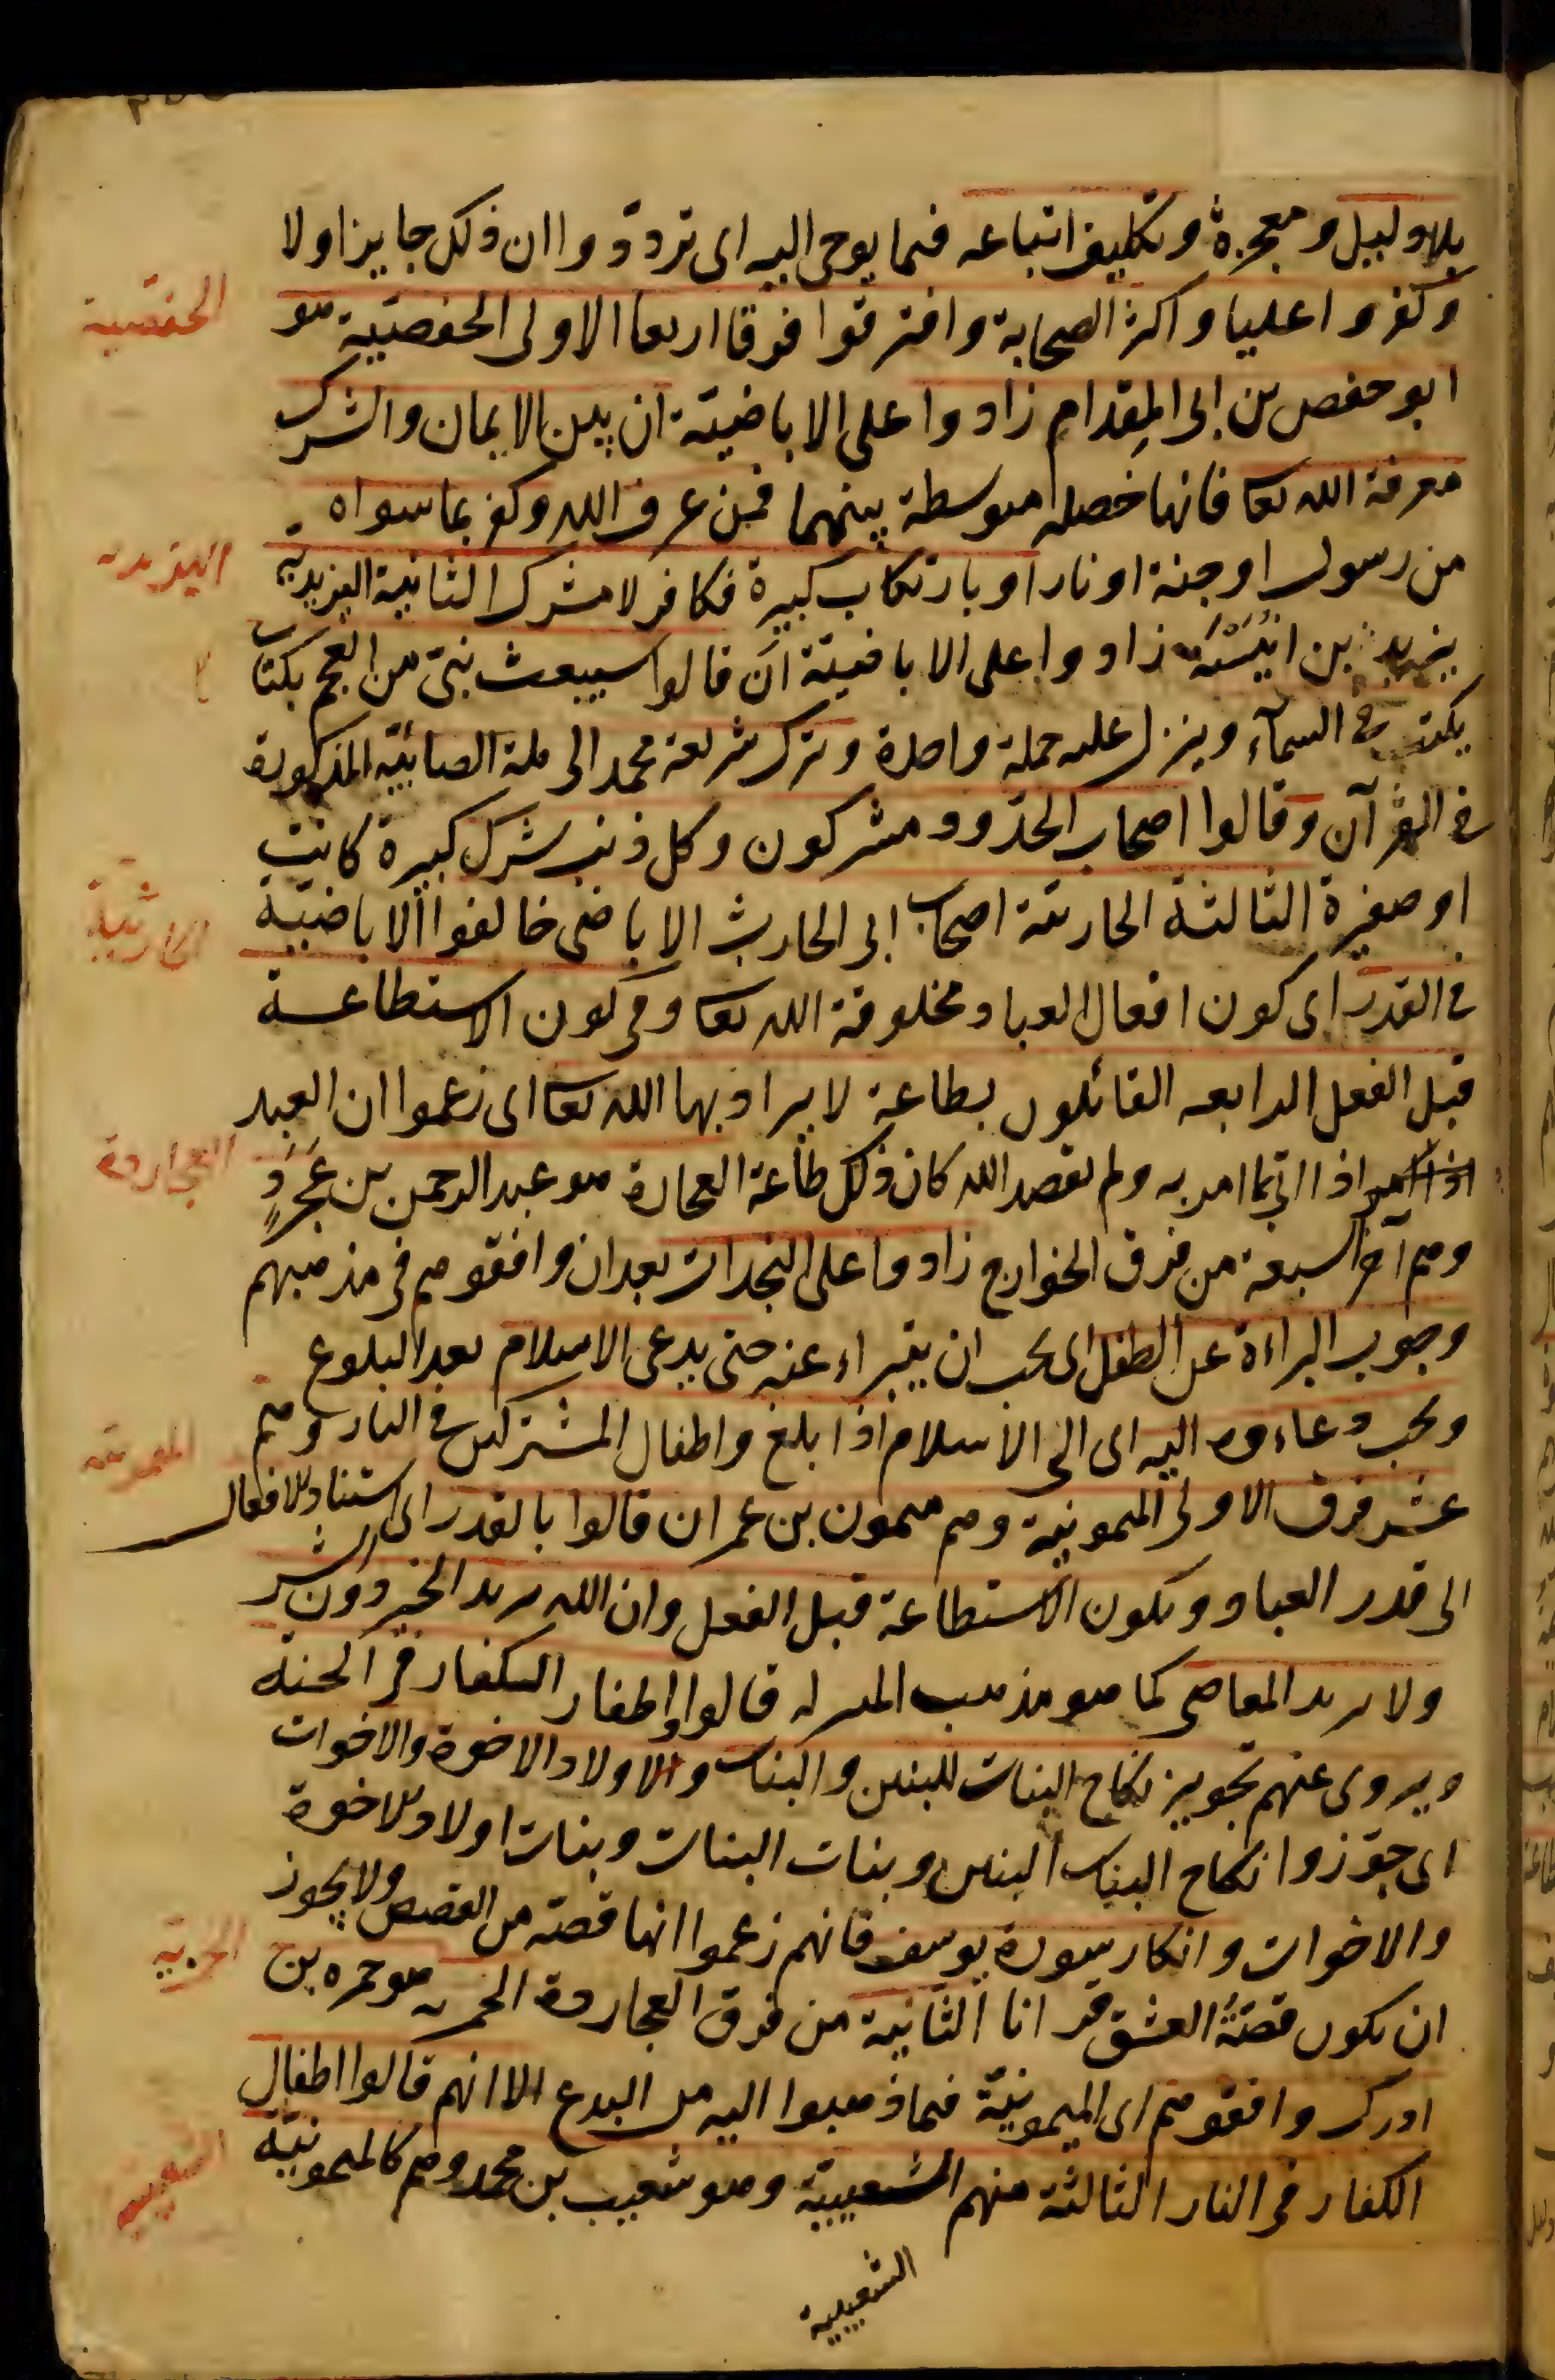 بلا دليل ومعجزة وتكليف اتباعه فيما يوحى اليه اى ترددوا ان ذلك جايز اولا
وكفروا عليا واكثر الصحابة وافترقوا فرقا اربعا الاولى الحفصيّة هو
الحفصية
ابو حفص بن ابى المقدام زادوا على الاباضيّة ان بين الايمان والشرك
معرفة الله تعا فانها خصلة متوسطة بينهما فمن عرف الله وكفر بما سواه
من رسول او جنة او نار او بارتكاب كبيرة فكافر لا مشرك الثانية اليزيدية
اليزيدية
يزيد بن انيسة زادوا على الاباضيّة ان قالوا سيبعث نبى من العجم بكتاب
يكتب فى السمآء وينزل عليه جملة واحدة وترك شريعة محمد الى ملة الصابئيّة المذكورة
فى القرآن وقالوا اصحاب الحدود مشركون وكل ذنب شرك كبيرة كانت
او صغيرة الثالثة الحارثية اصحاب ابى الحارث الاباضى خالفوا الاباضيّة
الحارثية
فى القدر اى كون افعال العباد مخلوقة الله تعا وفى كون الاستطاعة
قبل الفعل الرابعه القائلون بطاعة لا يراد بها الله تعا اى زعموا ان العبد
اذا اتى بما امر به ولم يقصد الله كان ذلك طاعة العجاردة هو عبد الرحمن بن عَجْرَدٍ
العجاردة
وهم آخر السبعة من فرق الخوارج زادوا على النجدات بعد ان وافقوهم فى مذهبهم
وجوب البراءة عن الطفل اى يجب ان يتبراء عنه حتى يدعى الاسلام بعد البلوغ
ويجب دعاءوه اليه اى الى الاسلام اذا بلغ واطفال المشركين فى النار وهم
عشر فرق الاولى الميمونية وهم ميمون بن عمران قالوا بالقدر اى استناد الافعال
الى قدر العباد ويكون الاستطاعة قبل الفعل وان الله يريد الخير دون الشر
ولا يريد المعاصى كما هو مذهب المعتزله قالوا واطفال الكفار فى الجنة
ويروى عنهم تجويز نكاح البنات للبنين والبنات والاولاد الاخوة والاخوات
اى جوّزوا نكاح البنات البنين وبنات البنات وبنات اولاد الاخوة
والاخوات وانكار سورة يوسف فانهم زعموا انها قصة من القصص ولا يجوز
ان يكون قصّةُ العشق قرانا الثّانية من فرق العجاردة الحمزيه هو حمزه بن
الحمزية
ادرك وافقوهم اى الميمونيّة فيما ذهبوا اليه من البدع الا انهم قالوا اطفال
الكفار فى النار الثالثة منهم الشعيبيّة وهو شعيب بن محمد وهم كالميمونيّة
الشعيبية
الشعيبية